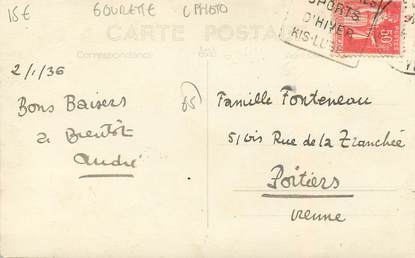 15€ GOURETTE CPHOTO
CARTE POSTALE
Correspondance
SPORTS
D'HIVER
50c
2/1/36
Bons Baisers
a Bientôt
André
65
Famille Fonteneau
51 bis Rue de la Tranchée
Poitiers
Vienne